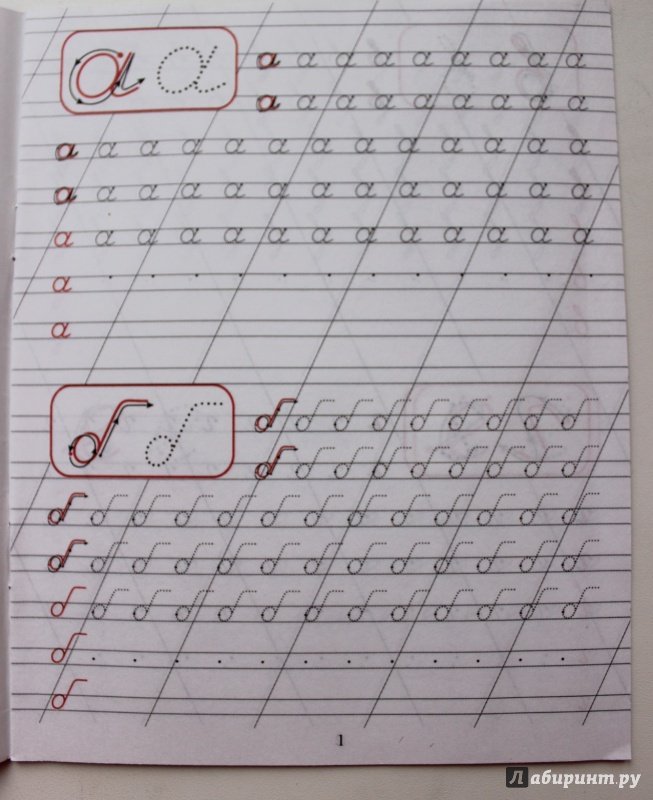 а а
а а а а а а а а а
а а а а а а а а а
а а а а а а а а а а а а а
а а а а а а а а а а а а а
а а а а а а а а а а а а а
а
а
б б
б б б б б б б б б
б б б б б б б б б
б б б б б б б б б б б б б
б б б б б б б б б б б б б
б б б б б б б б б б б б б
б
б
1
Лабиринт.ру